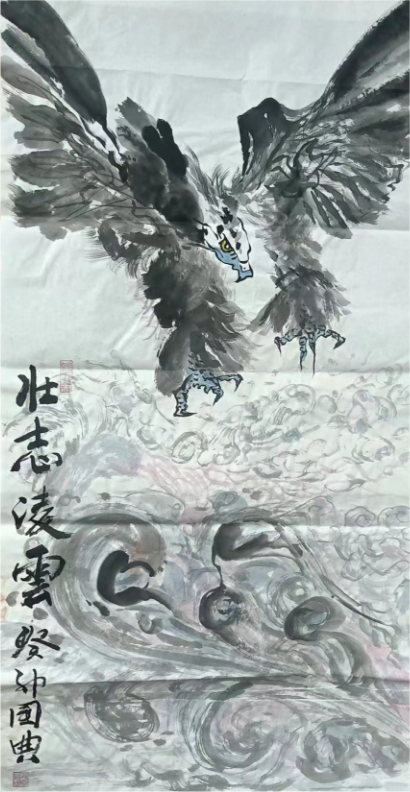 壮志凌雲 癸卯国典